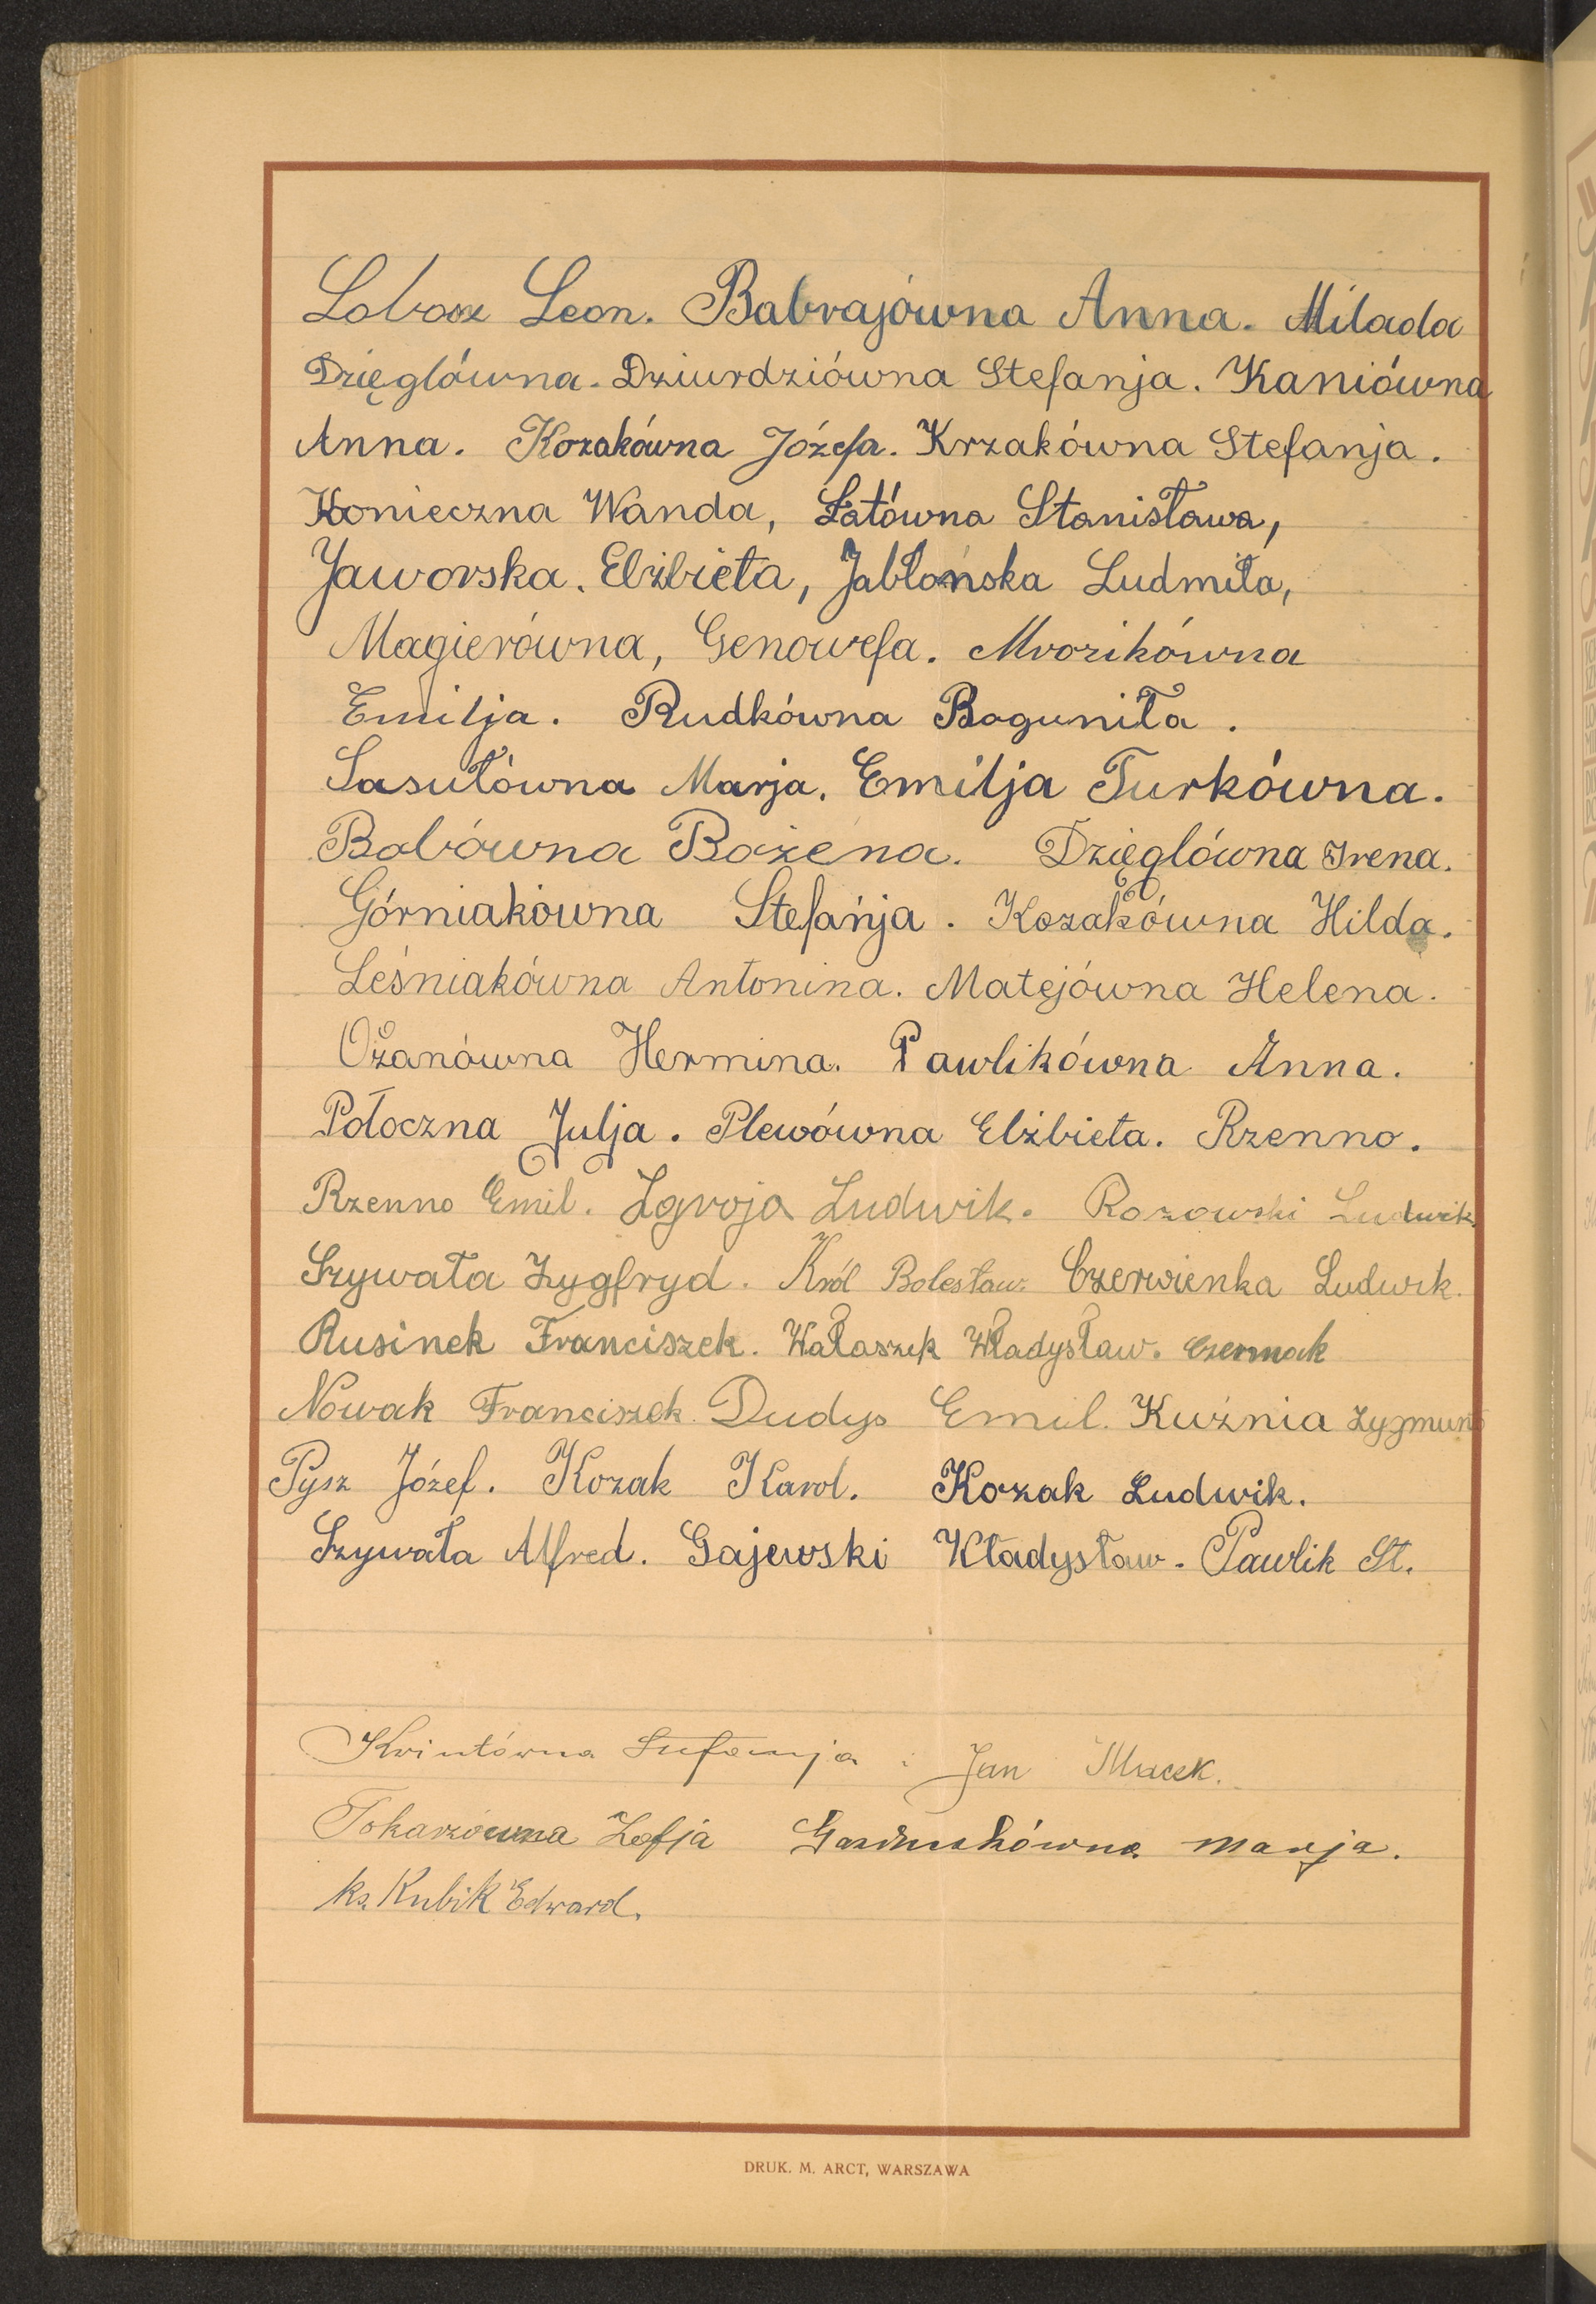 Labasz Leon. Babrajówna Anna. Milada
Dzięglówna. Dziurdziówna Stefanja. Kaniówna
Anna. Kozakówna Józefa. Krzakówna Stefanja.
Konieczna Wanda, Łatówna Stanisława,
Jaworska. Elżbieta, Jabłońska Ludmiła,
Magierówna, Genowefa. Mrozikówna
Emilja. Rudkówna Boguniła.
Sasułówna Marja. Emilja Turkówna.
Babówna Bożena. Dzięglówna Irena.
Górniakówna Stefanja. Kozakówna Hilda.
Leśniakówna Antonina. Matejówna Helena.
Ożanówna Hermina. Pawlikówna Anna.
Potoczna Julja. Plewówna Elżbieta. Rzenno.
Rzenno Emil. Zgroja Ludwik. Rozowski Ludwik
Szywała Zygfryd. Król Bolesław. Czerwienka Ludwik.
Rusinek Franciszek. Wałaszek Władysław. Czermak
Nowak Franciszek. Dudys Emil. Kuźnia Zygmunt
Pysz Józef. Kozak Karol. Kozak Ludwik.
Szywała Alfred. Gajewski Władysław. Pawlik St.
Kwintówna Stefanja Jan Macek.
Tokarzówna Zofja Marja.
ks. Kubik Edward.
DRUK. M. ARCT, WARSZAWA